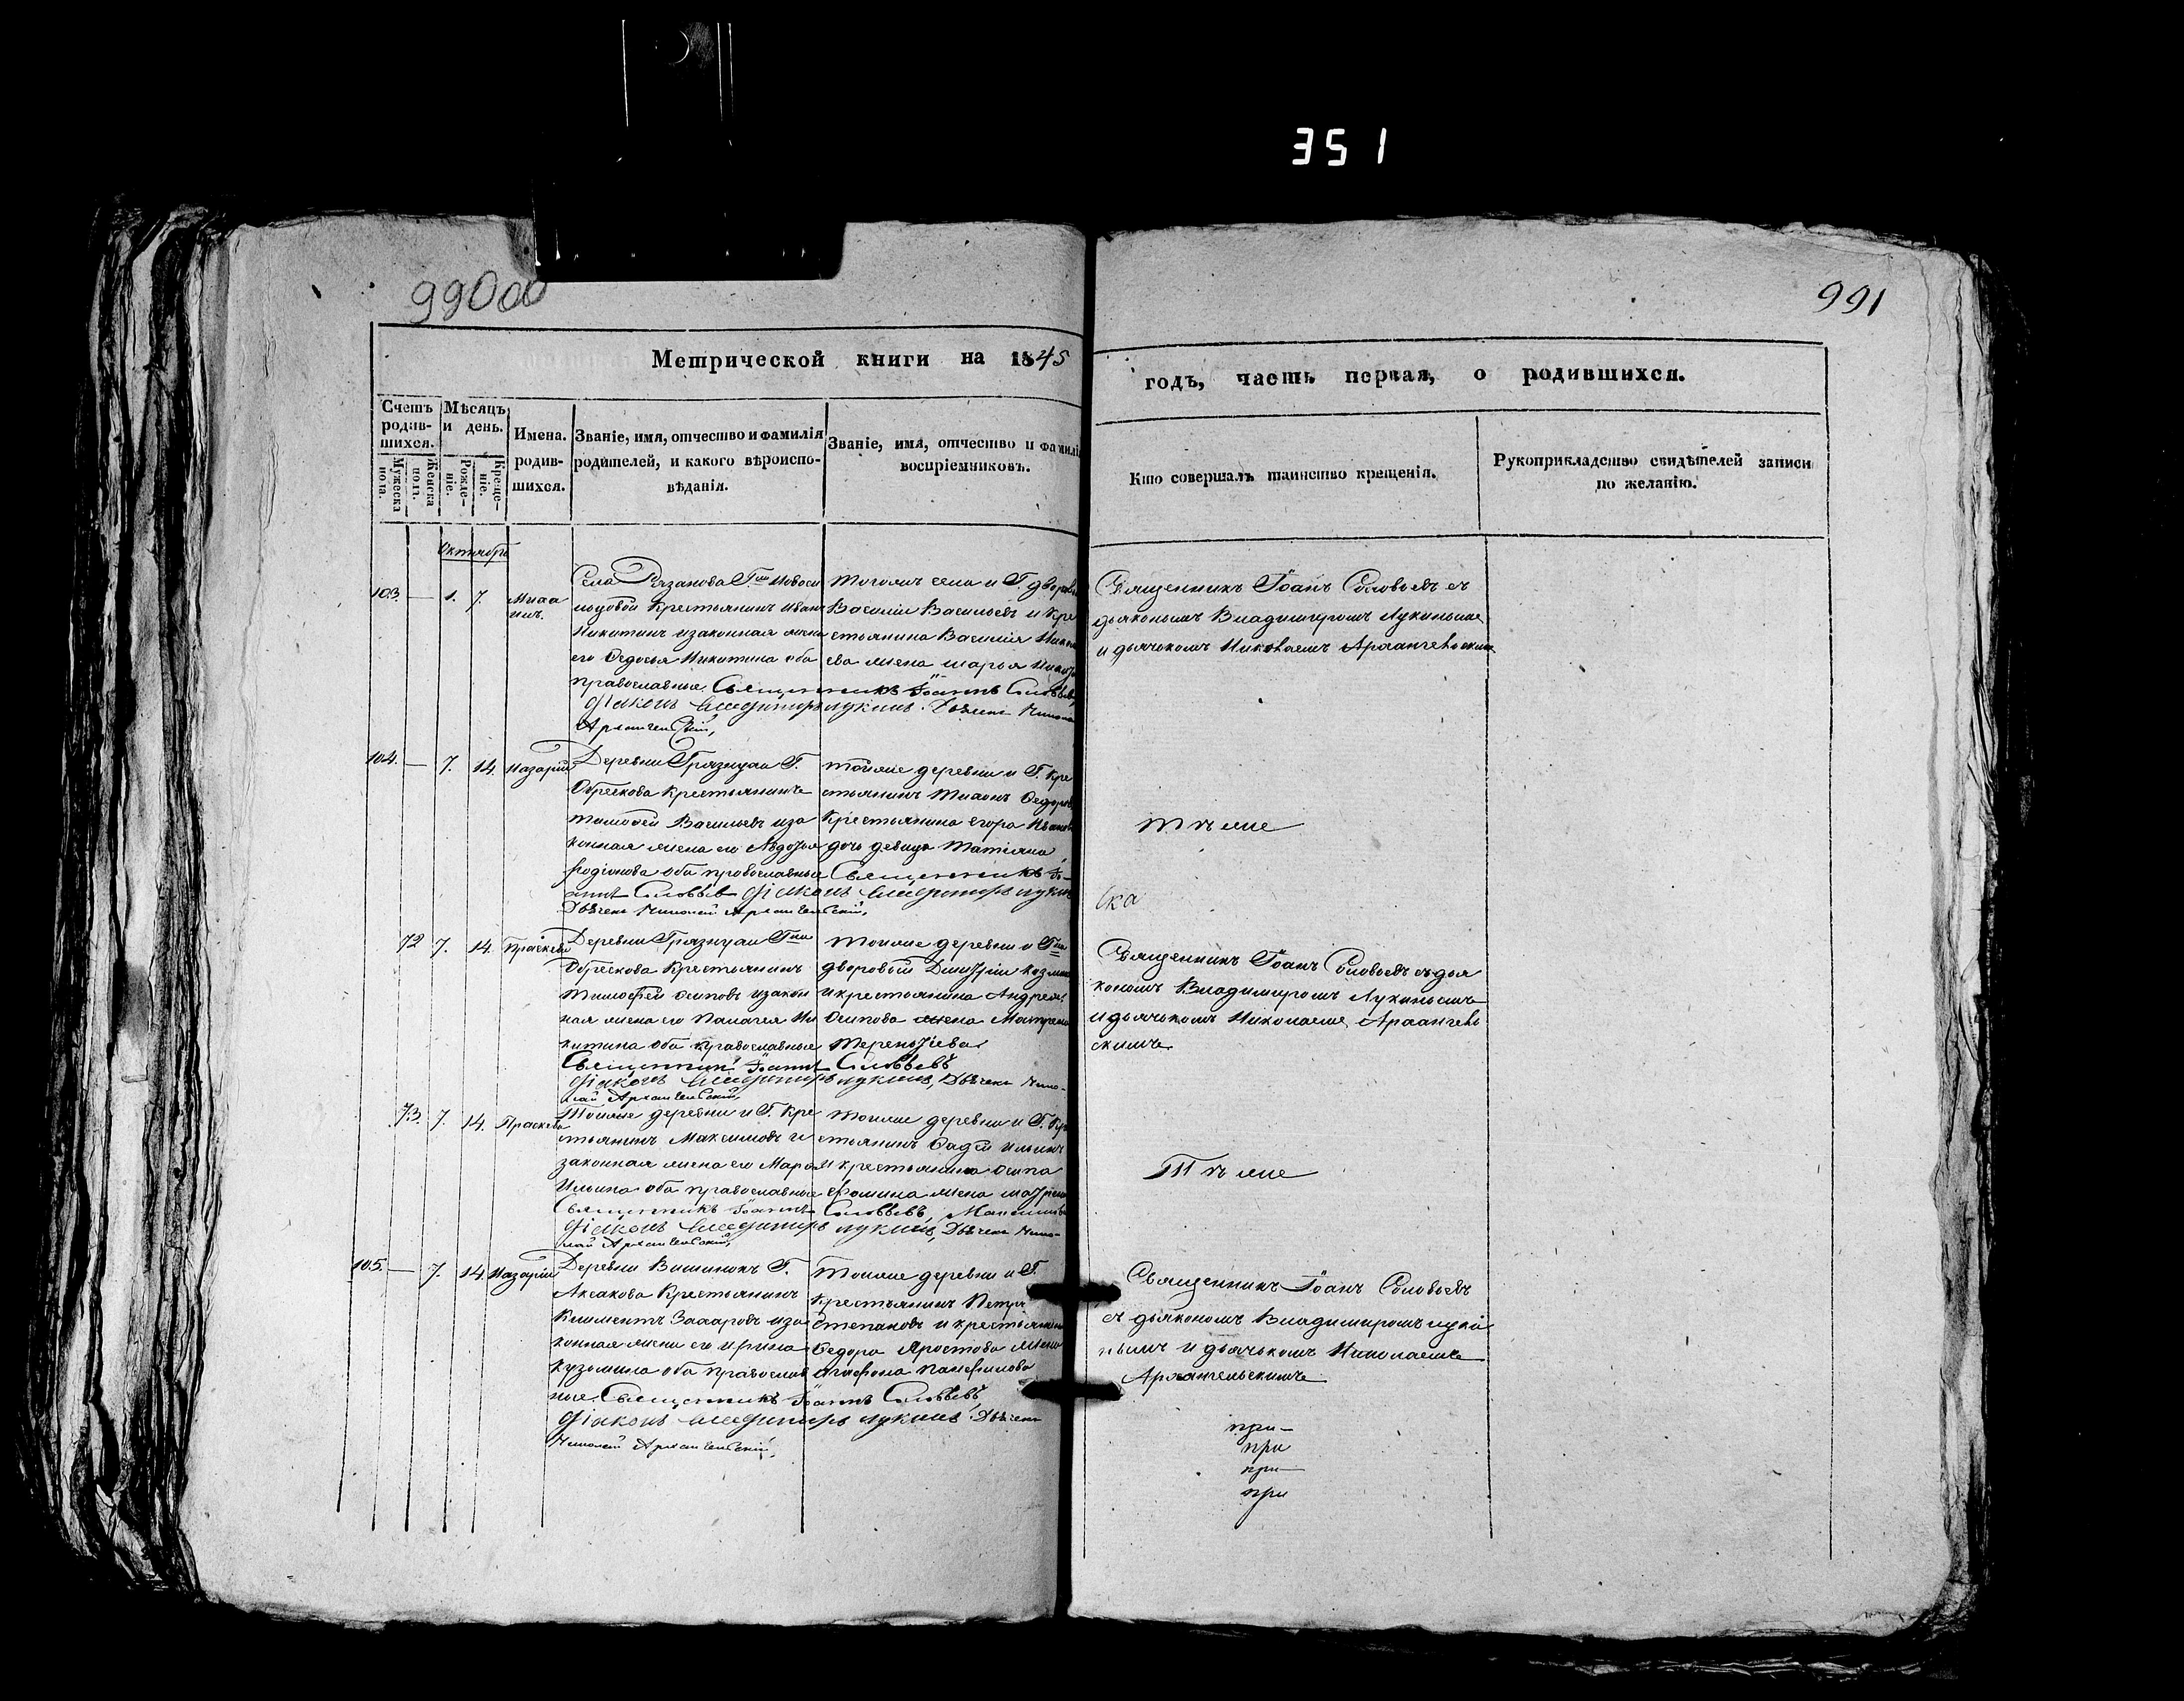 351
990об
991
Метрической книги на 1845
годъ, часть первая, о родившихся.
Счетъ родив-шихся.
Мужеска пола.
Женска пола.
Мѣсяцъ и день.
Рожде-ніе.
Креще-ніе.
Имена. родив-шихся.
Званіе, имя, отчество и фамилія
родителей, и какого вѣроиспо-
вѣданія.
Званіе, имя, отчество и фамилія
воспріемниковъ.
Кто совершалъ таинство крещенія.
Рукоприкладство свидѣтелей записи
по желанію.
Октября
103. — 1. 7.
Села Рязанова Гжи
крестьянинъ Иванъ
Никитинъ изаконная жена
его Федосья Никитина оба
православные. Священникъ Іоаннъ Соловьевъ
Діаконъ Владимиръ Лукинъ. Дьячекъ
Архангельскій,
тогожъ села и Г. дворовый
Василіи Васильевъ и кре
стьянина Василія
ева жена Марья
Священникъ Іоанъ Соловьевъ съ
дьякономъ Владимиромъ Лукинымъ
и дьячькомъ Николаемъ Архангельскимъ
104. — 7. 14. Назарій
Деревни Грязнуши Г.
Обрескова крестьянинъ
тимофей Васильевъ иза
конная жена его Авдотья
родіонова оба православные Священникъ Іо-
аннъ Соловьевъ Діаконъ Владимиръ Лукинъ
Дьячекъ Николай Архангельскій,
тойже деревни и Г. кре
стьянинъ Тихонъ Федоровъ
крестьянина егора Иванова
дочь девица Татіяна
Тѣже
ска
72 7. 14. Праскева
Деревни Грязнуши Гжи
Обрескова крестьянинъ
тимофей осиповъ изакон
ная жена его Палагея Ни
китина оба православные
Священникъ Іоаннъ Соловьевъ
Діаконъ Владимиръ Лукинъ, Дьячекъ Нико-
лай Архангельскій,
тойже деревни и Гжи
дворовый Дмитріи козмин
икрестьянина Андрея
Осипова жена Матрена
Терентіева.
Священникъ Іоанъ Соловьевъ съ дья
кономъ Владимиромъ Лукинымъ
и дьячькомъ Николаемъ Архангель
скимъ.
73. 7. 14. Праскева
Тойже деревни и Г. кре
стьянинъ Максимовъ и
законная жена его Марья
Ильина оба православные
Священникъ Іоаннъ Соловьевъ,
Діаконъ Владимиръ Лукинъ, Дьячекъ Нико-
лай Архангельскій,
тойже деревни и Г. кре
стьянинъ Фадей Ильинъ
и крестьянина осипа
Фомина жена матрена
Максимова
Тѣже
105. — 7. 14. Назарій
Деревни Вишинокъ Г.
Аксакова крестьянинъ
Климентъ Захаровъ иза
конная жена его ирина
кузьмина оба православ
ные. Священникъ Іоаннъ Соловьевъ
Діаконъ Владимиръ Лукинъ. Дьячекъ
Николай Архангельскій,
тойже деревни и Г.
крестьянинъ Петръ
Степановъ и крестьянина
Федора Аростова жена
агафона панфилова
Священникъ Іоанъ Соловьевъ
съ дьякономъ Владимиромъ луки
нымъ и дьячькомъ Николаемъ
Архангельскимъ
при-
при
при-
при